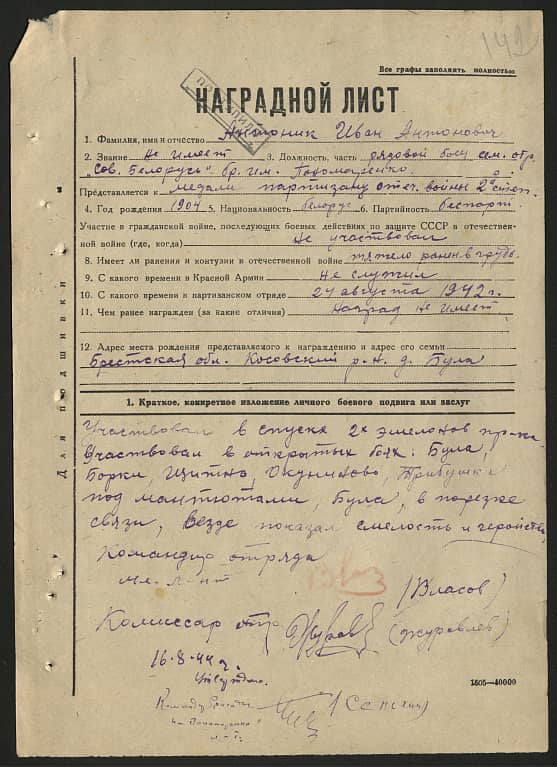 142
Все графы заполнить полностью
НАГРАДНОЙ ЛИСТ
1. Фамилия, имя и отчество Антоник Иван Антонович
2. Звание не имеет 3. Должность, часть рядовой боец сем. отр.
"Сов. Белорусь" бр. им. Пономаренко
Представляется к медали партизану отеч. войны 2й степ.
4. Год рождения 1904 5. Национальность белорус 6. Партийность беспарт.
Участие в гражданской войне, последующих боевых действиях по защите СССР в отечествен-
ной войне (где, когда) не участвовал
8. Имеет ли ранения и контузии в отечественной войне тяжело ранен в грудь
9. С какого времени в Красной Армии не служил
10. С какого времени в партизанском отряде 24 августа 1942 г.
11. Чем ранее награжден (за какие отличия) наград не имеет
12. Адрес места рождения представляемого к награждению и адрес его семьи
Брестская обл. Косовский р-н. д. Була
Для подшивки
1. Краткое, конкретное изложение личного боевого подвига или заслуг
Участвовал в спуске 2х эшелонов пр-ка
Участвовал в открытых боях: Була,
Борки, Щитно, Окуниново, Трибушки
под мантютами, Була, в порезке
связи, везде показал смелость и геройство
Командир отряда
мл. л-нт (Власов)
Комиссар отр. (Журавлев)
16.8.44 г.
1505—40000
Командир бригады
им. Пономаренко